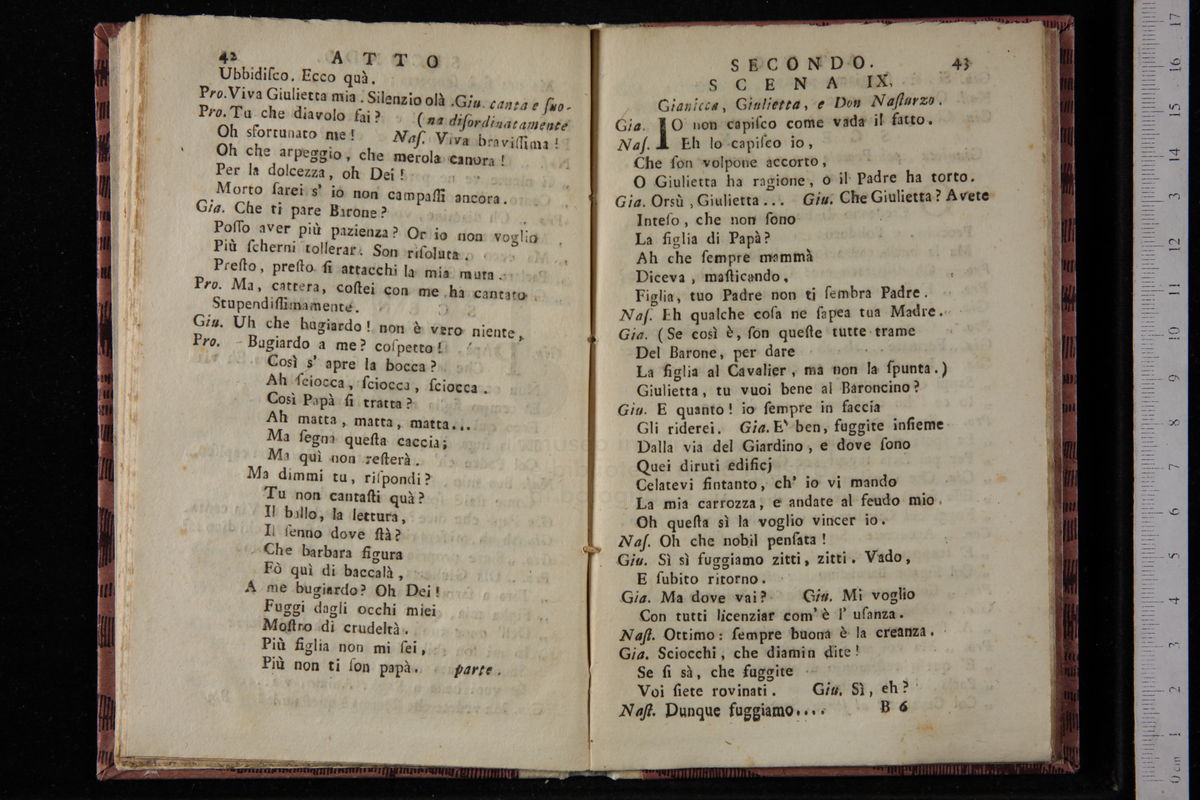 42 ATTO
Ubbidiſco. Ecco quà.
Pro. Viva Giulietta mia. Silenzio olà. Giu. canta e ſuo-
Pro. Tu che diavolo fai? (na diſordinatamente
Oh sfortunato me! Naſ. Viva braviſſima!
Oh che arpeggio, che merola canora!
Per la dolcezza, oh Dei!
Morto ſarei s' io non campaſſi ancora.
Gia. Che ti pare Barone?
Poſſo aver più pazienza? Or io non voglio
Più ſcherni tollerar. Son riſoluta.
Preſto, preſto ſi attacchi la mia muta.
Pro. Ma, cattera, coſtei con me ha cantato
Stupendiſſimamente.
Giu. Uh che bugiardo! non è vero niente,
Pro. Bugiardo a me? coſpetto!
Così s' apre la bocca?
Ah ſciocca, ſciocca, ſciocca.
Così Papà ſi tratta?
Ah matta, matta, matta...
Ma ſegna queſta caccia;
Ma quì non reſterà.
Ma dimmi tu, riſpondi?
Tu non cantaſti quà?
Il ballo, la lettura,
Il ſenno dove ſtà?
Che barbara figura
Fò quì di baccalà,
A me bugiardo? Oh Dei!
Fuggi dagli occhi miei
Moſtro di crudeltà.
Più figlia non mi ſei,
Più non ti ſon papà. parte.
SECONDO. 43
SCENA IX.
Gianicca, Giulietta, e Don Naſturzo.
Gia. IO non capiſco come vada il fatto.
Naſ. Eh lo capiſco io,
Che ſon volpone accorto,
O Giulietta ha ragione, o il Padre ha torto.
Gia. Orsù, Giulietta... Giu. Che Giulietta? Avete
Inteſo, che non ſono
La figlia di Papà?
Ah che ſempre mammà
Diceva, maſticando,
Figlia, tuo Padre non ti ſembra Padre.
Naſ. Eh qualche coſa ne ſapea tua Madre.
Gia. (Se così è, ſon queſte tutte trame
Del Barone, per dare
La figlia al Cavalier, ma non la ſpunta.)
Giulietta, tu vuoi bene al Baroncino?
Giu. E quanto! io ſempre in faccia
Gli riderei. Gia. E' ben, fuggite inſieme
Dalla via del Giardino, e dove ſono
Quei diruti edificj
Celatevi fintanto, ch' io vi mando
La mia carrozza, e andate al feudo mio.
Oh queſta sì la voglio vincer io.
Naſ. Oh che nobil penſata!
Giu. Sì sì fuggiamo zitti, zitti. Vado,
E ſubito ritorno.
Gia. Ma dove vai? Giu. Mi voglio
Con tutti licenziar com' è l' uſanza.
Naſt. Ottimo: ſempre buona è la creanza.
Gia. Sciocchi, che diamin dite!
Se ſi sà, che fuggite
Voi ſiete rovinati. Giu. Sì, eh?
Naſt. Dunque fuggiamo....
B 6
0 cm 1 2 3 4 5 6 7 8 9 10 11 12 13 14 15 16 17